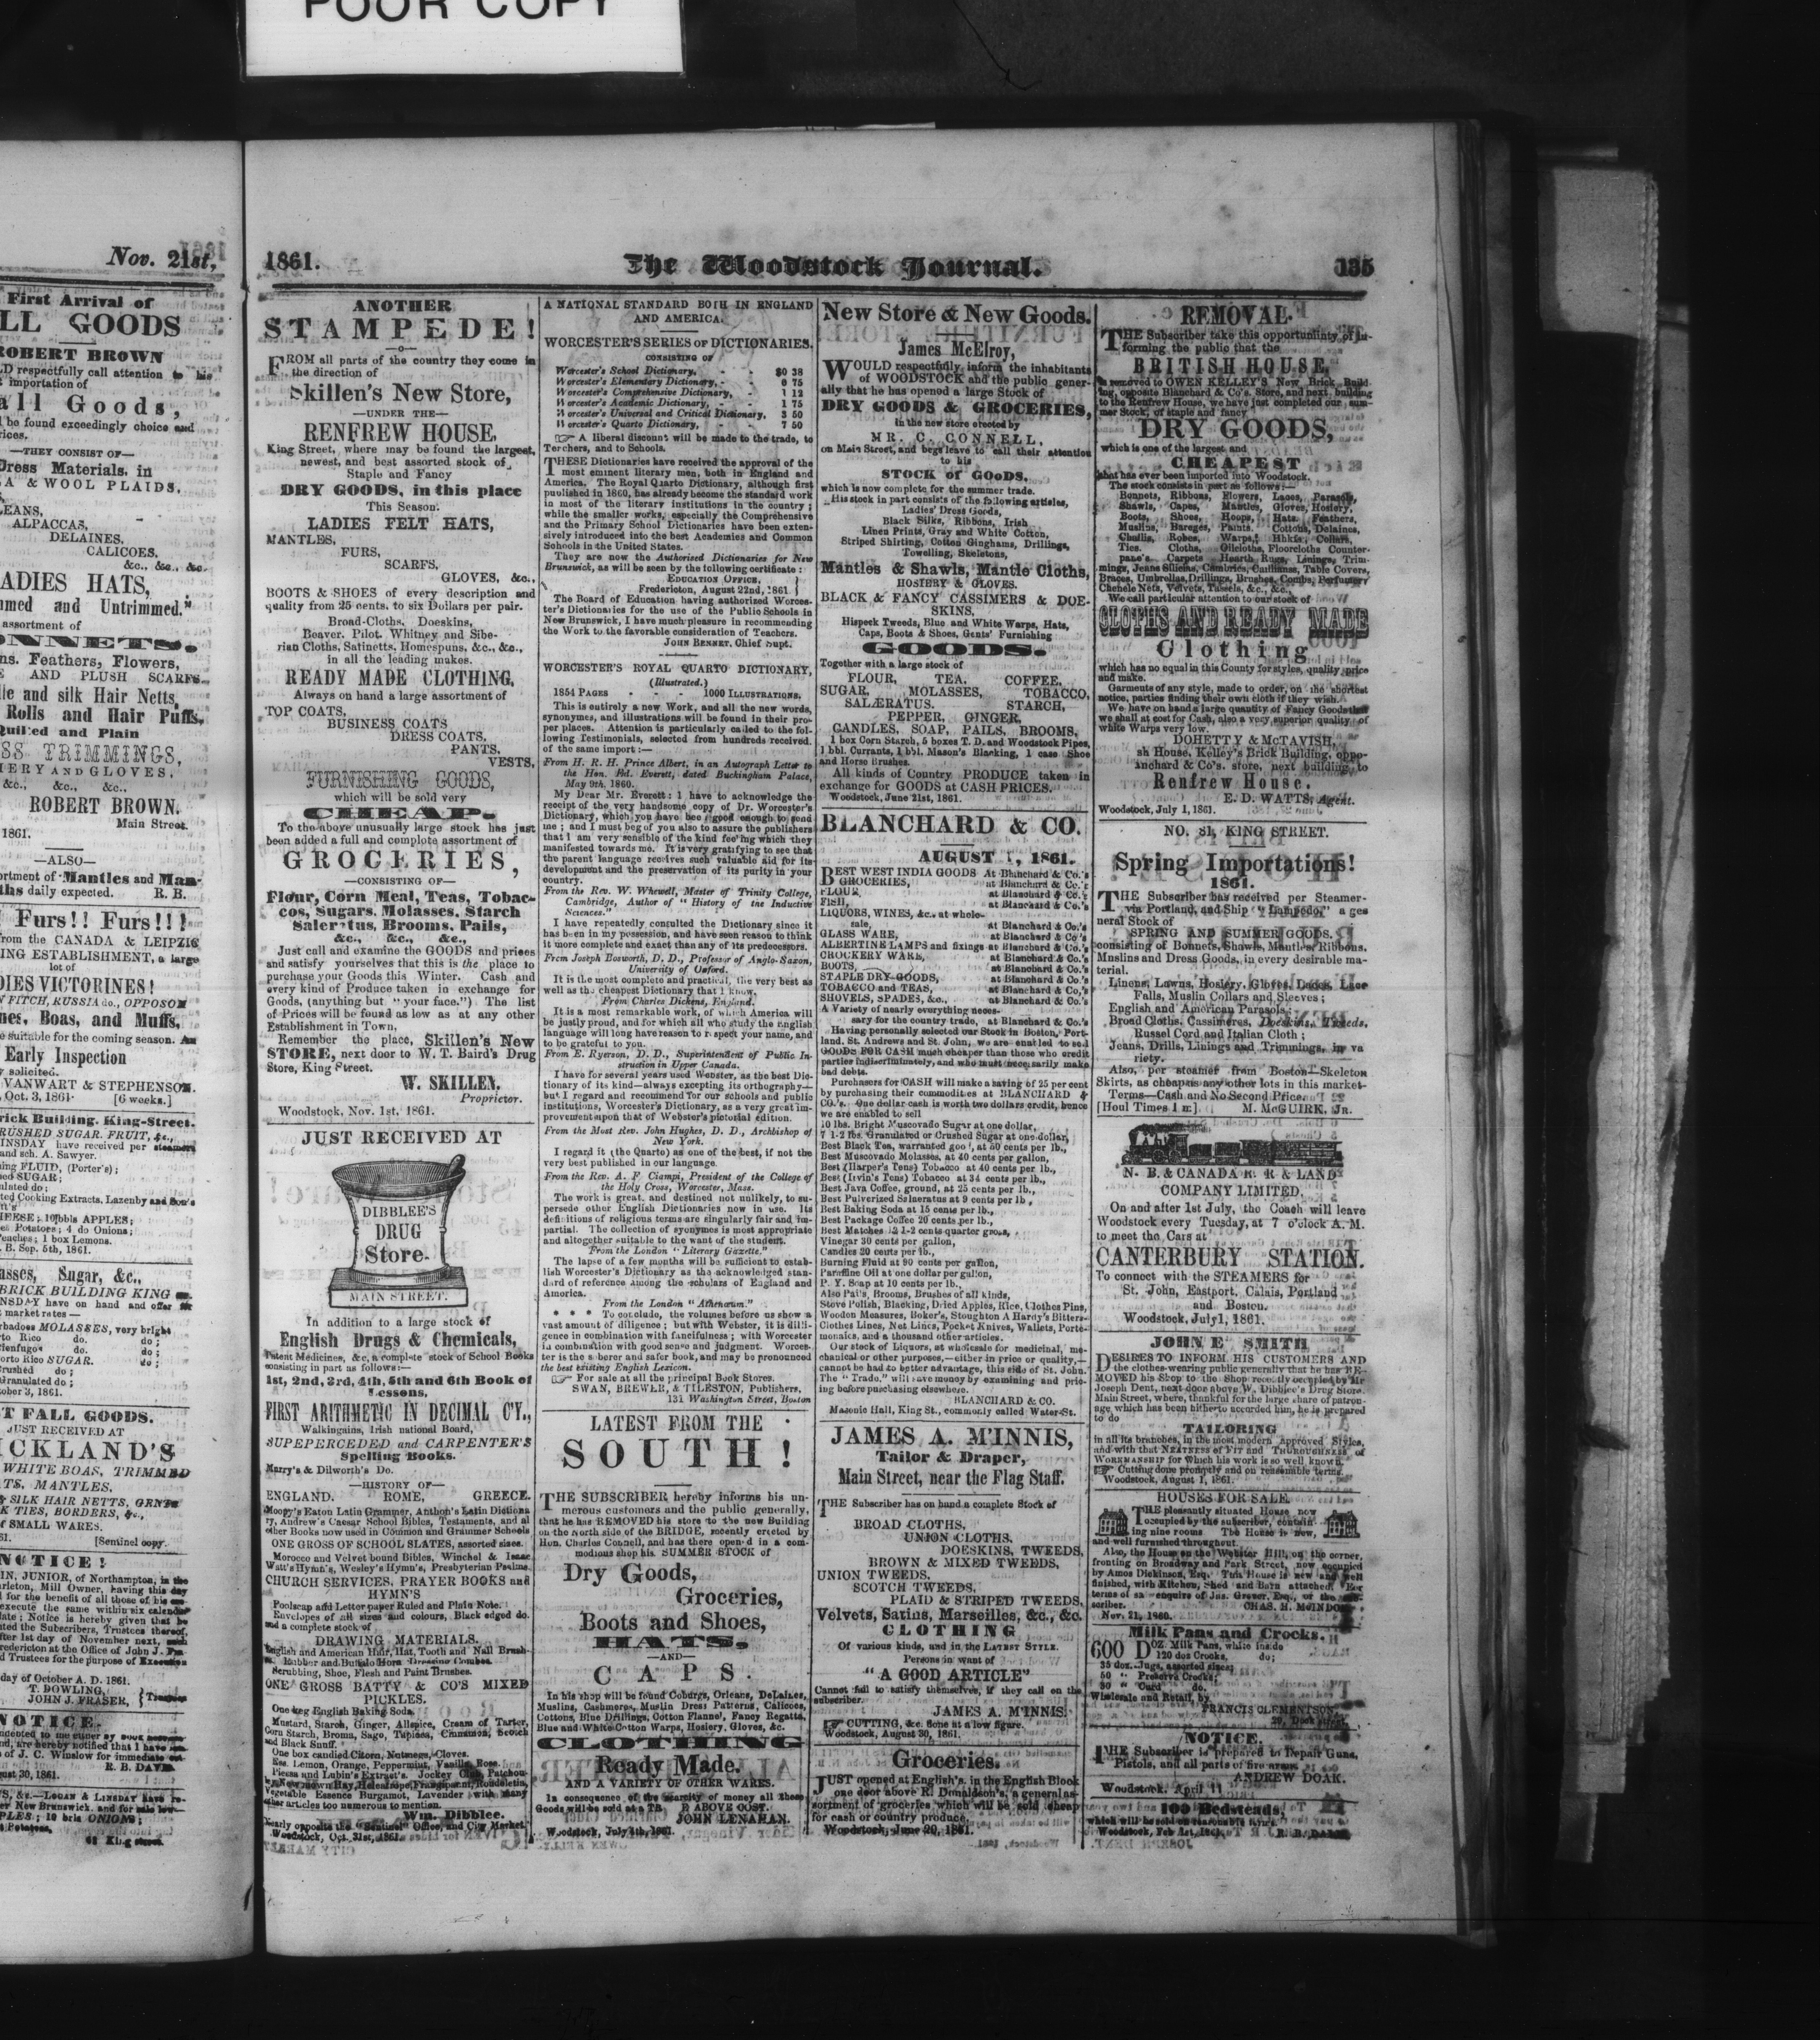 POOR COPY
Nov. 21st,
First Arrival of
LL GOODS
ROBERT BROWN
LD respectfully call attention to his
importation of
all Goods,
l be found exceedingly choice and
rices.
—THEY CONSIST OF—
Dress Materials, in
A & WOOL PLAIDS,
LEANS,
ALPACCAS,
DELAINES,
CALICOES,
&c., &c., &c.
ADIES HATS,
mmed and Untrimmed."
assortment of
ONNETS.
ns. Feathers, Flowers,
E AND PLUSH SCARFS.
lie and silk Hair Netts,
Rolls and Hair Puffs,
Quilted and Plain
SS TRIMMINGS,
IERY AND GLOVES,
&c., &c., &c.,
ROBERT BROWN.
Main Street.
1861.
—ALSO—
ortment of Mantles and Man-
ths daily expected. R. B.
Furs!! Furs!!!
rom the CANADA & LEIPZIG
ING ESTABLISHMENT, a large
lot of
DIES VICTORINES!
N FITCH, RUSSIA do., OPPOSOM
nes, Boas, and Muffs,
e suitable for the coming season. An
Early Inspection
y solicited.
VANWART & STEPHENSON.
, Oct. 3, 1861. [6 weeks.]
rick Building. King-Street.
RUSHED SUGAR. FRUIT, &c.,
INSDAY have received per steamers
and sch. A. Sawyer.
ing FLUID, (Porter's);
ed SUGAR;
ulated do;
ted Cooking Extracts, Lazenby and Son's
HEESE; 10 bbls APPLES;
es Potatoes; 4 do Onions;
Peaches; 1 box Lemons.
. B. Sep. 5th, 1861.
asses, Sugar, &c.,
BRICK BUILDING KING
NSDAY have on hand and offer
market rates —
rbadoes MOLASSES, very bright
to Rico do. do;
ienfugos do. do;
orto Rico SUGAR. do;
rushed do;
Granulated do;
tober 3, 1861.
T FALL GOODS.
JUST RECEIVED AT
ICKLAND'S
WHITE BOAS, TRIMMED
TS, MANTLES,
& SILK HAIR NETTS, GENTS
K TIES, BORDERS, &c.,
f SMALL WARES.
61. [Sentinel copy.
NOTICE!
IN, JUNIOR, of Northampton, in the
rleton, Mill Owner, having this day
for the benefit of all those of his
execute the same within six calendar
late; Notice is hereby given that
ted the Subscribers, Trustees thereof,
fter 1st day of November next,
redericton at the Office of John J.
d Trustees for the purpose of Execution
day of October A. D. 1861.
T. DOWLING,
JOHN J. FRASER, } Trustees
NOTICE.
nd, are hereby notified that I have
of J. C. Winslow for immediate
R. B. DAVIS.
ust 30, 1861.
S, &c.—LOGAN & LINDSAY have re-
er New Brunswick, and for sale low—
PLES; 10 brls ONIONS;
Potatoes,
King street.
1861.
The Woodstock Journal.
135
ANOTHER
STAMPEDE!
FROM all parts of the country they come in
the direction of
Skillen's New Store,
—UNDER THE—
RENFREW HOUSE,
King Street, where may be found the largest,
newest, and best assorted stock of
Staple and Fancy
DRY GOODS, in this place
This Season.
LADIES FELT HATS,
MANTLES,
FURS,
SCARFS,
GLOVES, &c.,
BOOTS & SHOES of every description and
quality from 25 cents. to six Dollars per pair.
Broad-Cloths, Doeskins,
Beaver, Pilot, Whitney and Sibe-
rian Cloths, Satinetts, Homespuns, &c., &c.,
in all the leading makes.
READY MADE CLOTHING,
Always on hand a large assortment of
TOP COATS,
BUSINESS COATS
DRESS COATS,
PANTS,
VESTS,
FURNISHING GOODS,
which will be sold very
CHEAP.
To the above unusually large stock has just
been added a full and complete assortment of
GROCERIES,
—CONSISTING OF—
Flour, Corn Meal, Teas, Tobac-
cos, Sugars, Molasses, Starch
Saleratus, Brooms, Pails,
&c., &c., &c.,
Just call and examine the GOODS and prices
and satisfy yourselves that this is the place to
purchase your Goods this Winter. Cash and
every kind of Produce taken in exchange for
Goods, (anything but "your face.") The list
of Prices will be found as low as at any other
Establishment in Town,
Remember the place, Skillen's New
STORE, next door to W. T. Baird's Drug
Store, King Street.
W. SKILLEN.
Proprietor.
Woodstock, Nov. 1st, 1861.
JUST RECEIVED AT
DIBBLEE'S
DRUG
Store.
MAIN STREET.
In addition to a large stock of
English Drugs & Chemicals,
Patent Medicines, &c, a complete stock of School Books
consisting in part as follows:—
1st, 2nd, 3rd, 4th, 5th and 6th Book of
Lessons,
FIRST ARITHMETIC IN DECIMAL C'Y.,
Walkingains, Irish national Board,
SUPEPERCEDED and CARPENTER'S
Spelling Books.
Marry's & Dilworth's Do.
—HISTORY OF—
ENGLAND. ROME, GREECE.
Moopy's Eaton Latin Grammer, Anthon's Latin Dictiona
ry, Andrew's Caesar School Bibles, Testaments, and al
other Books now used in Common and Grammer Schools
ONE GROSS OF SCHOOL SLATES, assorted sizes.
Morocco and Velvet bound Bibles, Winchel & Isaac
Watt's Hymn's, Wesley's Hymn's, Presbyterian Psalms
CHURCH SERVICES, PRAYER BOOKS and
HYMN'S
Foolscap and Letter paper Ruled and Plain Note.
Envelopes of all sizes and colours, Black edged do.
and a complete stock of
DRAWING MATERIALS.
English and American Hair, Hat, Tooth and Nail Brush-
es. Rubber and Buffalo Horn Dressing Combes
Scrubbing, Shoe, Flesh and Paint Brushes.
ONE GROSS BATTY & CO'S MIXED
PICKLES.
One keg English Baking Soda,
Mustard, Starch, Ginger, Allspice, Cream of Tarter,
Corn Starch, Broma, Sago, Tapioca, Cinnamon, Scotch
and Black Snuff.
One box candied Citorn, Nutmegs, Cloves.
Ess. Lemon, Orange, Peppermint, Vanilla, Rose.
Piessa and Lubin's Extract's. Jockey Club, Patchou-
ly, Newmown Hay, Heleotrope, Frangipanni, Rondeletia,
Vegetable Essence Burgamot, Lavender with many
other articles too numerous to mention.
Wm. Dibblee.
Nearly opposite the "Sentinel" Office, and City Market
Woodstock, Oct. 31st, 1861.
A NATIONAL STANDARD BOTH IN ENGLAND
AND AMERICA.
WORCESTER'S SERIES OF DICTIONARIES,
CONSISTING OF
Worcester's School Dictionary, - - $0 38
Worcester's Elementary Dictionary, - - 0 75
Worcester's Comprehensive Dictionary, - 1 12
Worcester's Academic Dictionary, - - 1 75
Worcester's Universal and Critical Dictionary, 3 50
Worcester's Quarto Dictionary, - - 7 50
☞ A liberal discount will be made to the trade, to
Terchers, and to Schools.
THESE Dictionaries have received the approval of the
most eminent literary men, both in England and
America. The Royal Quarto Dictionary, although first
puulished in 1860, has already become the standard work
in most of the literary institutions in the country;
while the smaller works, especially the Comprehensive
and the Primary School Dictionaries have been exten-
sively introduced into the best Academies and Common
Schools in the United States.
They are now the Authorised Dictionaries for New
Brunswick, as will be seen by the following certificate:
EDUCATION OFFICE, }
Fredericton, August 22nd, 1861. }
The Board of Education having authorized Worces-
ter's Dictionaries for the use of the Public Schools in
New Brunswick, I have much pleasure in recommending
the Work to the favorable consideration of Teachers.
JOHN BENNET, Chief Supt.
WORCESTER'S ROYAL QUARTO DICTIONARY,
(Illustrated.)
1854 PAGES - - - 1000 ILLUSTRATIONS.
This is entirely a new Work, and all the new words,
synonymes, and illustrations will be found in their pro-
per places. Attention is particularly called to the fol-
lowing Testimonials, selected from hundreds received,
of the same import:—
From H. R. H. Prince Albert, in an Autograph Letter to
the Hon. Ed. Everett, dated Buckingham Palace,
May 9th, 1860.
My Dear Mr. Everett: I have to acknowledge the
receipt of the very handsome copy of Dr. Worcester's
Dictionary, which you have been good enough to send
me; and I must beg of you also to assure the publishers
that I am very sensible of the kind feeling which they
manifested towards me. It is very gratifying to see that
the parent language receives such valuable aid for its
development and the preservation of its purity in your
country.
From the Rev. W. Whewell, Master of Trinity College,
Cambridge, Author of "History of the Inductive
Sciences."
I have repeatedly consulted the Dictionary since it
has been in my possession, and have seen reason to think
it more complete and exact than any of its predecessors.
From Joseph Bosworth, D. D., Professor of Anglo-Saxon,
Univerity of Oxford.
It is the most complete and practical, the very best as
well as the cheapest Dictionary that I know.
From Charles Dickens, England.
It is a most remarkable work, of which America will
be justly proud, and for which all who study the English
language will long have reason to respect your name, and
to be grateful to you.
From E. Ryerson, D. D., Superintendent of Public In-
struction in Upper Canada.
I have for several years used Webster, as the best Dic-
tionary of its kind—always excepting its orthography—
but I regard and recommend for our schools and public
institutions, Worcester's Dictionary, as a very great im-
provement upon that of Webster's pictorial edition.
From the Most Rev. John Hughes, D. D., Archbishop of
New York.
I regard it (the Quarto) as one of the best, if not the
very best published in our language.
From the Rev. A. F. Ciampi, President of the College of
the Holy Cross, Worcester, Mass.
The work is great, and destined not unlikely, to su-
persede other English Dictionaries now in use. Its
definitions of religious terms are singularly fair and im-
partial. The collection of synonymes is most appropriate
and altogether suitable to the want of the student.
From the London "Literary Gazette."
The lapse of a few months will be sufficient to estab-
lish Worcester's Dictionary as the acknowledged stan-
dard of reference among the scholars of England and
America.
From the London "Athenæum."
* * * To conclude, the volumes before us show a
vast amount of diligence; but with Webster, it is dilli-
gence in combination with fancifulness; with Worcester
in combination with good sense and judgment. Worces-
ter is the soberer and safer book, and may be pronounced
the best existing English Lexicon.
☞ For sale at all the principal Book Stores.
SWAN, BREWER, & TILESTON, Publishers,
131 Washington Street, Boston
LATEST FROM THE
SOUTH!
THE SUBSCRIBER hereby informs his nu-
merous customers and the public generally,
that he has REMOVED his store to the new Building
on the North side of the BRIDGE, recently erected by
Hon. Charles Connell, and has there opened in a com-
modious shop his SUMMER STOCK of
Dry Goods,
Groceries,
Boots and Shoes,
HATS.
—AND—
CAPS.
In his shop will be found Coburgs, Orleans, DeLaines,
Muslins, Cashmeres, Muslin Dress Patterns, Calicoes,
Cottons, Blue Drillings, Cotton Flannel, Fancy Regatta,
Blue and White Cotton Warps, Hosiery, Gloves, &c.
CLOTHING
Ready Made.
AND A VARIETY OF OTHER WARES.
In consequence of the scarcity of money all these
Goods will be sold at a ABOVE COST.
JOHN LENAHAN.
Woodstock, July 4th, 1861.
New Store & New Goods.
James McElroy,
WOULD respectfully inform the inhabitants
of WOODSTOCK and the public gener-
ally that he has opened a large Stock of
DRY GOODS & GROCERIES,
in the new store erected by
MR. C. CONNELL,
on Main Street, and begs leave to call their attention
to his
STOCK OF GOODS,
which is now complete for the summer trade.
His stock in part consists of the following articles,
Ladies' Dress Goods,
Black Silks, Ribbons, Irish
Linen Prints, Gray and White Cotton,
Striped Shirting, Cotton Ginghams, Drillings,
Towelling, Skeletons,
Mantles & Shawls, Mantle Cloths,
HOSIERY & GLOVES.
BLACK & FANCY CASSIMERS & DOE-
SKINS,
Hispeck Tweeds, Blue and White Warps, Hats,
Caps, Boots & Shoes, Gents' Furnishing
GOODS.
Together with a large stock of
FLOUR, TEA. COFFEE.
SUGAR, MOLASSES, TOBACCO,
SALÆRATUS. STARCH,
PEPPER, GINGER,
CANDLES, SOAP, PAILS, BROOMS,
1 box Corn Starch, 5 boxes T. D. and Woodstock Pipes,
1 bbl. Currants, 1 bbl. Mason's Blacking, 1 case Shoe
and Horse Brushes.
All kinds of Country PRODUCE taken in
exchange for GOODS at CASH PRICES.
Woodstock, June 21st, 1861.
BLANCHARD & CO.
AUGUST 1, 1861.
BEST WEST INDIA GOODS At Blanchard & Co.'s
GROCERIES, at Blanchard & Co.'s
FLOUR, at Blanchard & Co.'s
FISH, at Blanchard & Co.'s
LIQUORS, WINES, &c. at whole-
sale, at Blanchard & Co's
GLASS WARE, at Blanchard & Co's
ALBERTINE LAMPS and fixings at Blanchard & Co.'s
CROCKERY WARE, at Blanchard & Co.'s
BOOTS, at Blanchard & Co.'s
STAPLE DRY-GOODS, at Blanchard & Co.'s
TOBACCO and TEAS, at Blanchard & Co.'s
SHOVELS, SPADES, &c., at Blanchard & Co.'s
A Variety of nearly everything neces-
sary for the country trade, at Blanchard & Co.'s
Having personally selected our Stock in Boston, Port-
land, St. Andrews and St. John, we are enabled to sell
GOODS FOR CASH much cheaper than those who credit
parties indiscriminately, and who must necessarily make
bad debts.
Purchasers for CASH will make a saving of 25 per cent
by purchasing their commodities at BLANCHARD &
CO.'s. One dollar cash is worth two dollars credit, hence
we are enabled to sell
10 lbs. Bright Muscovado Sugar at one dollar,
7 1-2 lbs. Granulated or Crushed Sugar at one dollar,
Best Black Tea, warranted good, at 50 cents per lb.,
Best Muscovado Molasses, at 40 cents per gallon,
Best (Harper's Tens) Tobacco at 40 cents per lb.,
Best (Irvin's Tens) Tobacco at 34 cents per lb.,
Best Java Coffee, ground, at 25 cents per lb.,
Best Pulverized Salæratus at 9 cents per lb,
Best Baking Soda at 15 cents per lb.,
Best Package Coffee 20 cents per lb.,
Best Matches 12 1-2 cents quarter gross,
Vinegar 30 cents per gallon,
Candles 20 cents per lb.,
Burning Fluid at 90 cents per gallon,
Paraffine Oil at one dollar per gallon,
P. Y. Soap at 10 cents per lb.,
Also Pails, Brooms, Brushes of all kinds,
Stove Polish, Blacking, Dried Apples, Rice, Clothes Pins,
Wooden Measures, Boker's, Stoughton A Hardy's Bitters
Clothes Lines, Net Lines, Pocket Knives, Wallets, Porte-
monaies, and a thousand other articles.
Our stock of Liquors, at wholesale, for medicinal, me-
chanical or other purposes,—either in price or quality,—
cannot be had to better advantage, this side of St. John.
The "Trade," will save money by examining and pric-
ing before purchasing elsewhere.
BLANCHARD & CO.
Masonic Hall, King St., commonly called Water-St.
JAMES A. M'INNIS,
Tailor & Draper,
Main Street, near the Flag Staff.
THE Subscriber has on hand a complete Stock of
BROAD CLOTHS,
UNION CLOTHS,
DOESKINS, TWEEDS,
BROWN & MIXED TWEEDS,
UNION TWEEDS,
SCOTCH TWEEDS,
PLAID & STRIPED TWEEDS,
Velvets, Satins, Marseilles, &c., &c.
CLOTHING
Of various kinds, and in the LATEST STYLE.
Persons in want of
"A GOOD ARTICLE"
Cannot fail to satisfy themselves, if they call on the
subscriber.
JAMES A. M'INNIS.
☞ CUTTING, &c. done at a low figure.
Woodstock, August 30, 1861.
Groceries.
JUST opened at English's, in the English Block
one door above R. Donaldson's, a general as-
sortment of groceries which will be sold cheap
for cash or country produce
Woodstock, June 20, 1861.
REMOVAL.
THE Subscriber take this opportuninty of in-
forming the public that the
BRITISH HOUSE,
is removed to OWEN KELLEY'S New Brick Build-
ing, opposite Blanchard & Co's. Store, and next building
to the Renfrew House, we have just completed our sum-
mer Stock, of staple and fancy
DRY GOODS,
which is one of the largest and
CHEAPEST
that has ever been imported into Woodstock.
The stock consists in part as follows:—
Bonnets, Ribbons, Flowers, Laces, Parasols,
Shawls, Capes, Mantles, Gloves, Hosiery,
Boots, Shoes, Hoops, Hats, Feathers,
Muslins, Bareges, Paints, Cottons, Delaines,
Challis, Robes, Warps, Hhkfs, Collars,
Ties. Cloths, Oilcloths, Floorcloths Counter-
pane's Carpets Hearth Rugs, Linings, Trim-
mings, Jeans Silicias, Cambrics, Table Covers,
Braces, Umbrellas, Drillings, Brushes, Combs, Perfumery
Chenele Nets, Velvets, Tassels, &c., &c.,
We call particular attention to our stock of
CLOTHS AND READY MADE
Clothing
which has no equal in this County for styles, quality price
and make.
Garments of any style, made to order, on the shortest
notice, parties finding their own cloth if they wish.
We have on hand a large quantity of Fancy Goods that
we shall at cost for Cash, also a very superior quality of
white Warps very low.
DOHETTY & McTAVISH,
sh House, Kelley's Brick Building, oppo-
anchard & Co's. store, next building to
Renfrew House.
E. D. WATTS, Agent.
Woodstock, July 1, 1861.
NO. 81, KING STREET.
Spring Importations!
1861.
THE Subscriber has received per Steamer-
via Portland, and Ship "Lampedo" a ges
neral Stock of
SPRING AND SUMMER GOODS,
consisting of Bonnets, Shawls, Mantles, Ribbons,
Muslins and Dress Goods, in every desirable ma-
terial.
Linens, Lawns, Hosiery, Gloves, Laces, Lace
Falls, Muslin Collars and Sleeves;
English and American Parasols;
Broad Cloths, Cassimeres, Doeskins, Tweeds,
Russel Cord and Italian Cloth;
Jeans, Drills, Linings and Trimmings, in va
riety.
Also, per steamer from Boston—Skeleton
Skirts, as cheap as any other lots in this market-
Terms—Cash and No Second Price.
[Houl Times 1 m] M. McGUIRK, Jr.
N. B. & CANADA R. R & LAND
COMPANY LIMITED.
On and after 1st July, the Coach will leave
Woodstock every Tuesday, at 7 o'clock A. M.
to meet the Cars at
CANTERBURY STATION.
To connect with the STEAMERS for
St. John, Eastport, Calais, Portland
and Boston.
Woodstock, July 1, 1861.
JOHN E SMITH
DESIRES TO INFORM HIS CUSTOMERS AND
the clothes-wearing public generally that he has RE-
MOVED his Shop to the Shop recently occupied by Mr
Joseph Dent, next door above W. Dibblee's Drug Store
Main Street, where, thankful for the large share of patron-
age which has been hitherto accorded him, he is prepared
to do
TAILORING
in all its branches, in the most modern approved Styles,
and with that NEATNESS of FIT and THOROUGHNESS of
WORKMANSHIP for which his work is so well known.
☞ Cutting done promptly and on reasonable terms.
Woodstock, August 1, 1861.
HOUSES FOR SALE
THE pleasantly situated House now
occupied by the subscriber, contain-
ing nine rooms The House is new,
and well furnished throughout.
Also, the House on the Webster Hill, on the corner,
fronting on Broadway and Park Street, now occupied
by Amos Dickinson, Esq. This House is new and well
finished, with Kitchen, Shed and Barn attached. For
terms of sa enquire of Jas. Grover, Esq., or the sub-
scriber. CHAS. H. McINDOE
Nov. 21, 1860.
Milk Pans and Crocks.
600 DOZ. Milk Pans, white inside
120 doz Crocks, do;
35 doz. Jugs, assorted sizes;
50 " Preserve Crocks;
30 " Curd do.
Wholesale and Retail, by
FRANCIS CLEMENTSON,
29, Dock street
NOTICE.
THE Subscriber is prepared to Repair Guns,
Pistols, and all parts of fire arms.
ANDREW DOAK.
Woodstock, April 11
100 Bedsteads,
which will be sold on reasonable terms.
Woodstock, Feb 1st, 1861. R. B. DAVIS